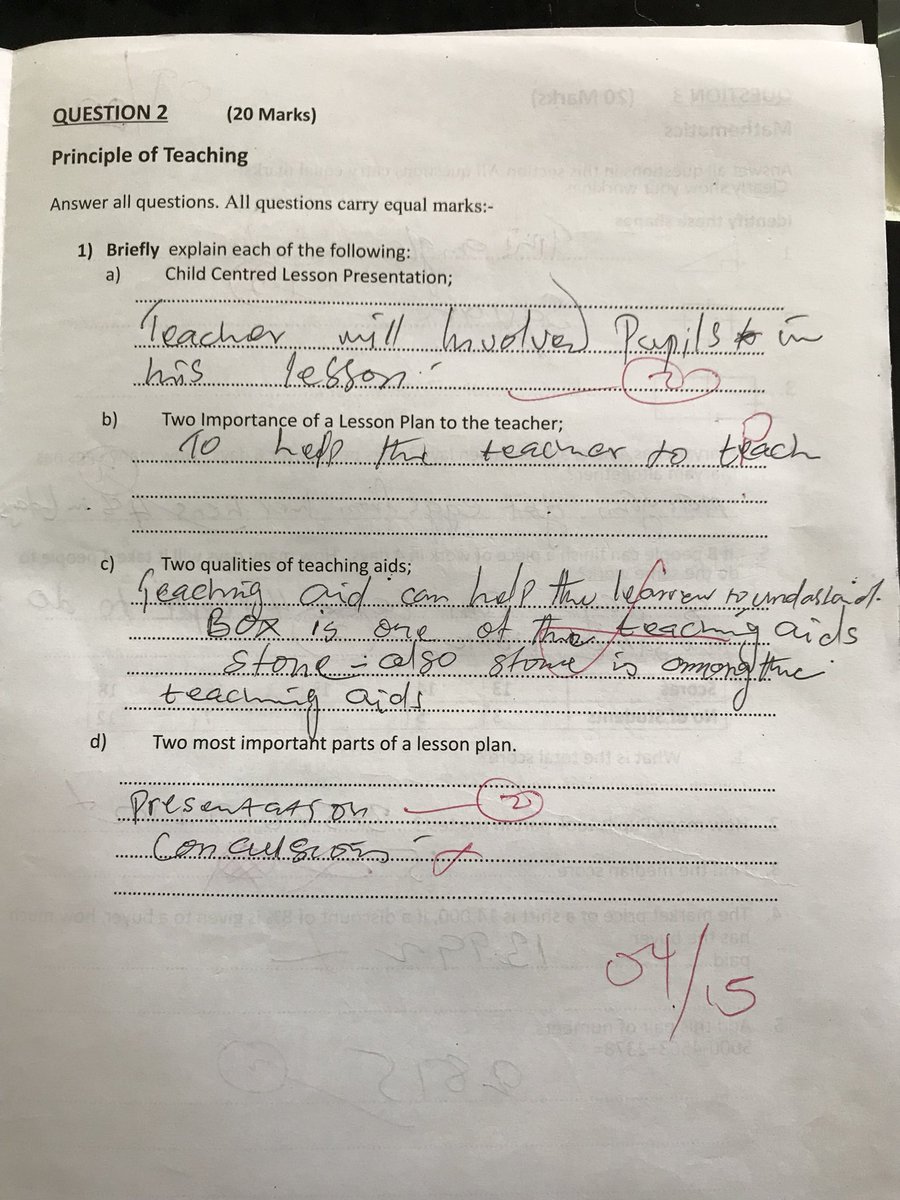 QUESTION 2 (20 Marks)
Principle of Teaching
Answer all questions. All questions carry equal marks:-
1) Briefly explain each of the following:
a) Child Centred Lesson Presentation;
Teacher will Involved Pupils in
his lesson.
2
b) Two Importance of a Lesson Plan to the teacher;
To help the teacher to teach
c) Two qualities of teaching aids;
Teaching aid can help the
Box is one of the teaching aids
Stone - also stone is among the
teaching aids
d) Two most important parts of a lesson plan.
Presentation 2
04/15